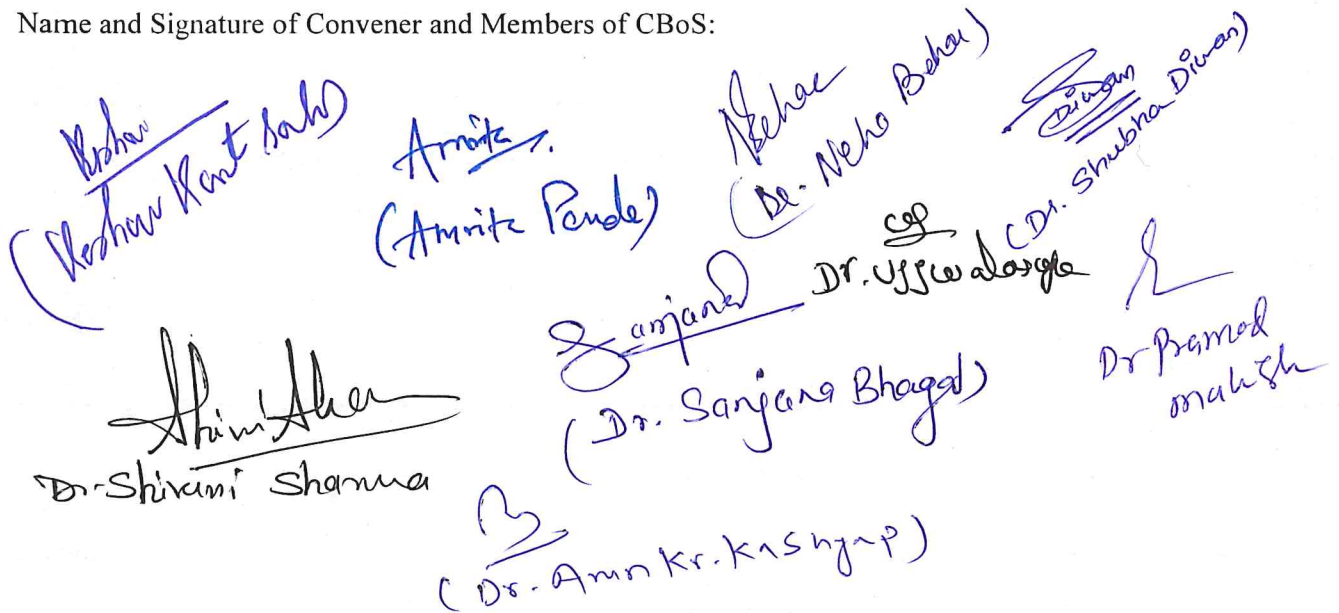 Name and Signature of Convener and Members of CBoS:
Keshav
(Keshav Kant Sahu)
Amrita
(Amrita Pande)
Neha
(Dr. Neha Behar)
Diwan
(Dr. Shubha Diwan)
Dr. Ujjwala
Sanjana
(Dr. Sanjana Bhagat)
Dr Pramod
mahish
Dr. Shivani Sharma
(Dr. Arun Kr. Kashyap)